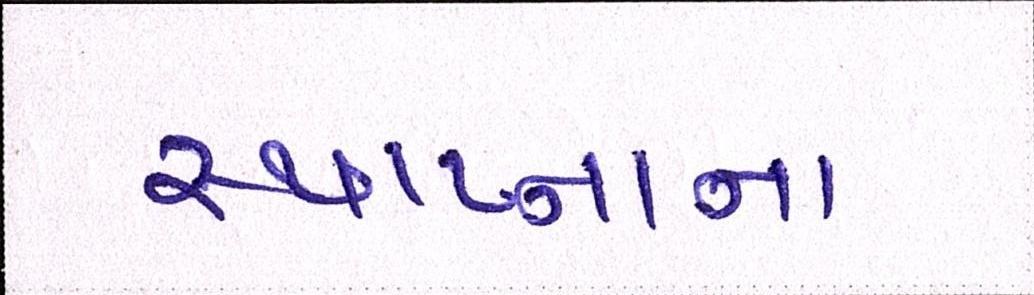 સ્થાપ્નાના